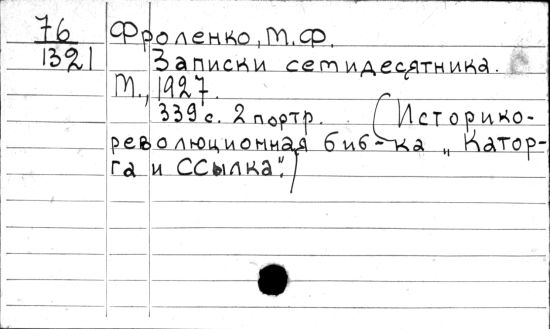 76 Фроленко, М.Ф.
1321 Записки семидесятника.
М., 1927.
339 с. 2 портр. (Историко-
революционная биб-ка „Катор-
га и ССылка".)